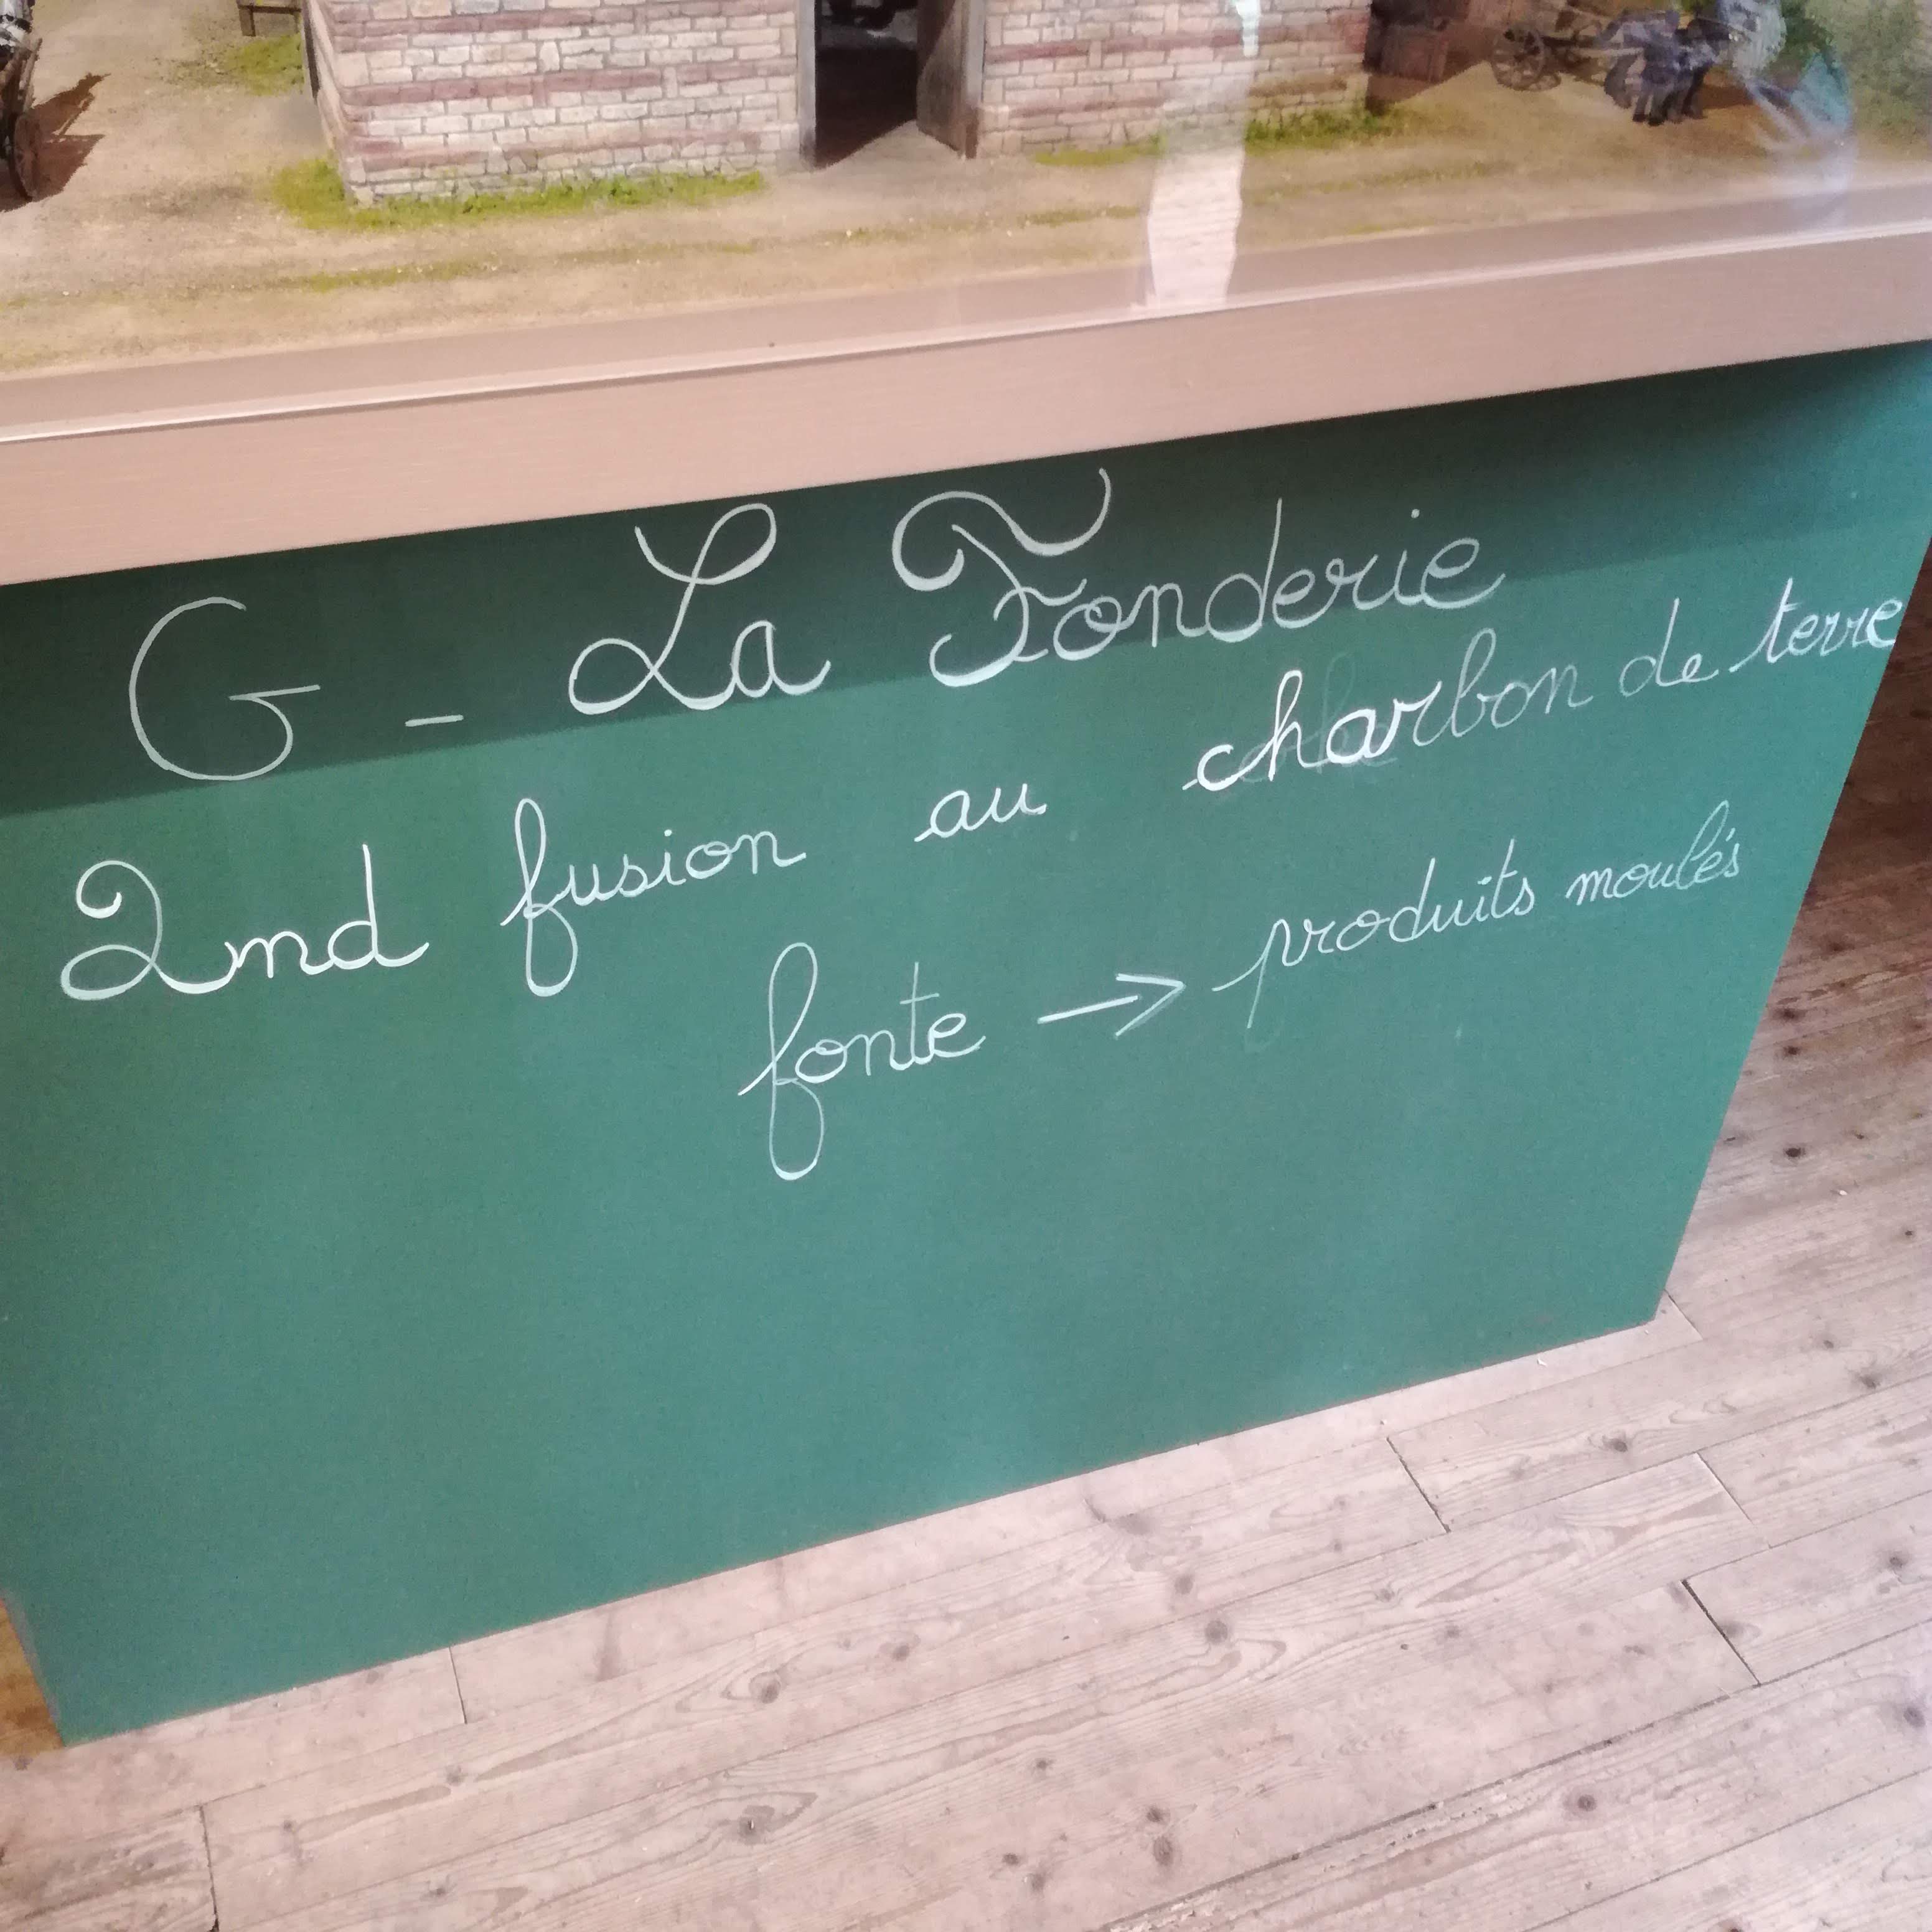 G - La Fonderie
2nd fusion au charbon de terre
fonte → produits moulés